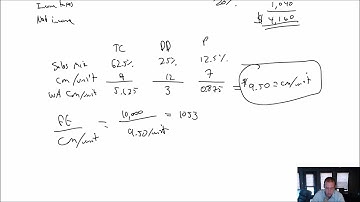 Income taxes 20% 1,040
Net income $ 4,160
TC DD P
Sales Mix 62.5% 25% 12.5%
cm/unit 9 12 7
WA cm/unit 5.625 3 0.875 = $9.50 = cm/unit
FE = 10,000 = 1053
cm/unit 9.50/unit